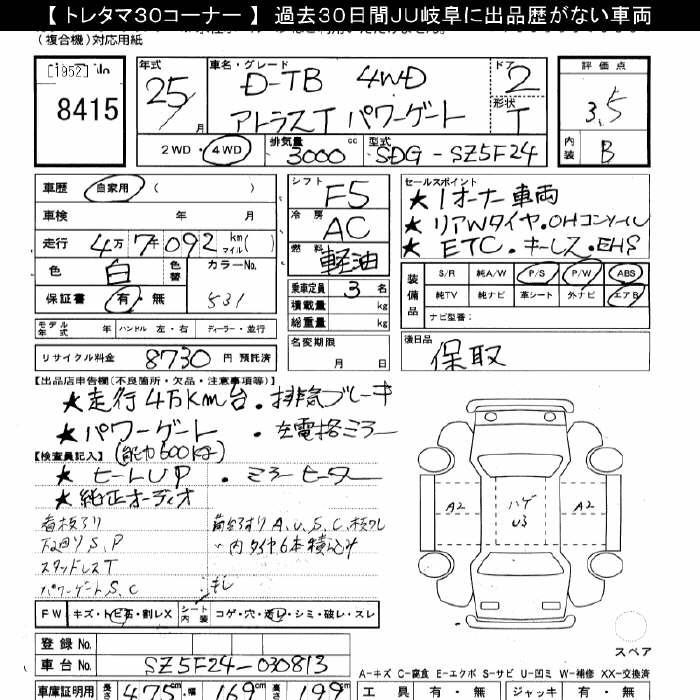 【 トレタマ30コーナー 】 過去30日間JU岐阜に出品歴がない車両
(複合機)対応用紙
[1952] No
8415
年式 25 月
車名・グレード D-TB 4WD
アトラスT パワーゲート
ドア 2
形状 T
評価点
3.5
内装 B
2WD・4WD 排気量 3000 cc 型式 SDG-SZ5F24
車歴 自家用 ( )
車検 年 月
走行 4万7千092 km マイル( )
色 白 色替 カラーNo.
保証書 有・無 531
モデル年式 年 ハンドル 左・右 ディーラー・並行
リサイクル料金 8730 円 預託済
シフト F5
冷房 AC
燃料 軽油
乗車定員 3 名
積載量 kg
総重量 kg
名変期限 月 日
セールスポイント
★ 1オーナー車両
★ リアWタイヤ・OHコンソール
★ ETC・キーレス・EHS
装備品 S/R 純A/W P/S P/W ABS
純TV 純ナビ 革シート 外ナビ エアB
ナビ型番:
後日品
保取
【出品店申告欄(不良箇所・欠品・注意事項等)】
★走行4万km台・排気ブレーキ
★パワーゲート ・左電格ミラー
(能力600kg)
【検査員記入】
★ヒートUP ・ミラーヒーター
★純正オーディオ
看板アリ
下廻りS、P
スタッドレスT
パワーゲートS、C
A2 ハゲ U3 A2
FW キズ・トビ石・割レX シート内装 コゲ・穴・スレ・シミ・破レ・スレ
登録No.
車台No. SZ5F24-030813
スペア
A-キズ C-腐食 E-エクボ S-サビ U-凹ミ W-補修 XX-交換済
車庫証明用 長さ 475 cm・幅 169 cm 高さ 199 cm
工具 有・無 ジャッキ 有・無